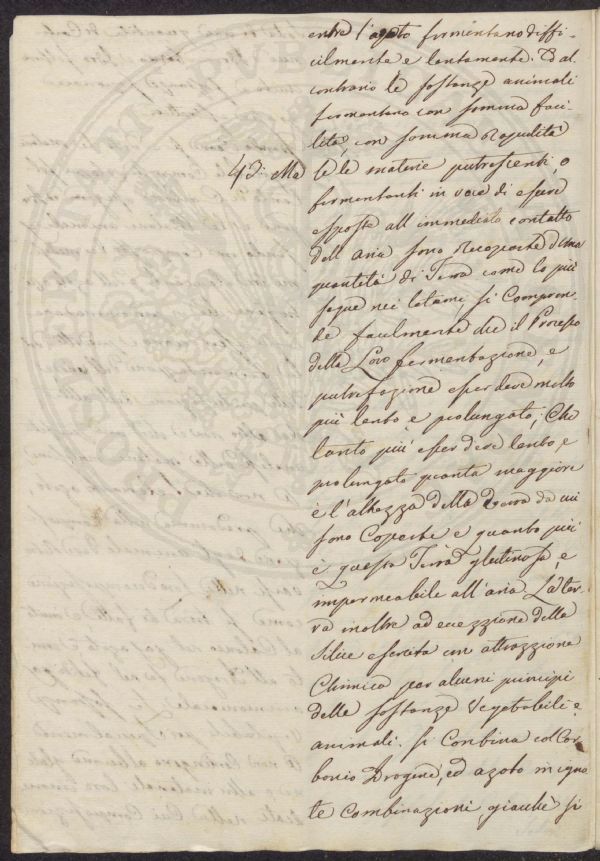 entre l'azoto fermentano diffi-
cilmente e lentamente. Ed al
contrario le sostanze animali
fermentano con somma faci-
lità, con somma rapidità
43. Ma se le materie putrescenti, o
fermentanti in vece di essere
esposte all'immediato contatto
dell'aria sono ricoperte d'una
quantità di Terra come lo più
segue nei letami, si compren-
de facilmente che il Processo
della Loro fermentazione, e
putrefazione esser deve molto
più lento e prolungato; Che
tanto più esser deve lento, e
prolungato quanto maggiore
è l'altezza della Terra da cui
sono Coperte e quanto più
e questa Terra glutinosa, e
impermeabile all'aria La ter-
ra inoltre ad eccezzione della
Silice esercita un attrazzione
Chimica par alcuni principi
delle sostanze Vegetabili e
animali. si Conbina col Car-
bonio Idrogene, ed azoto in igno-
te Combinazioni giacchè si